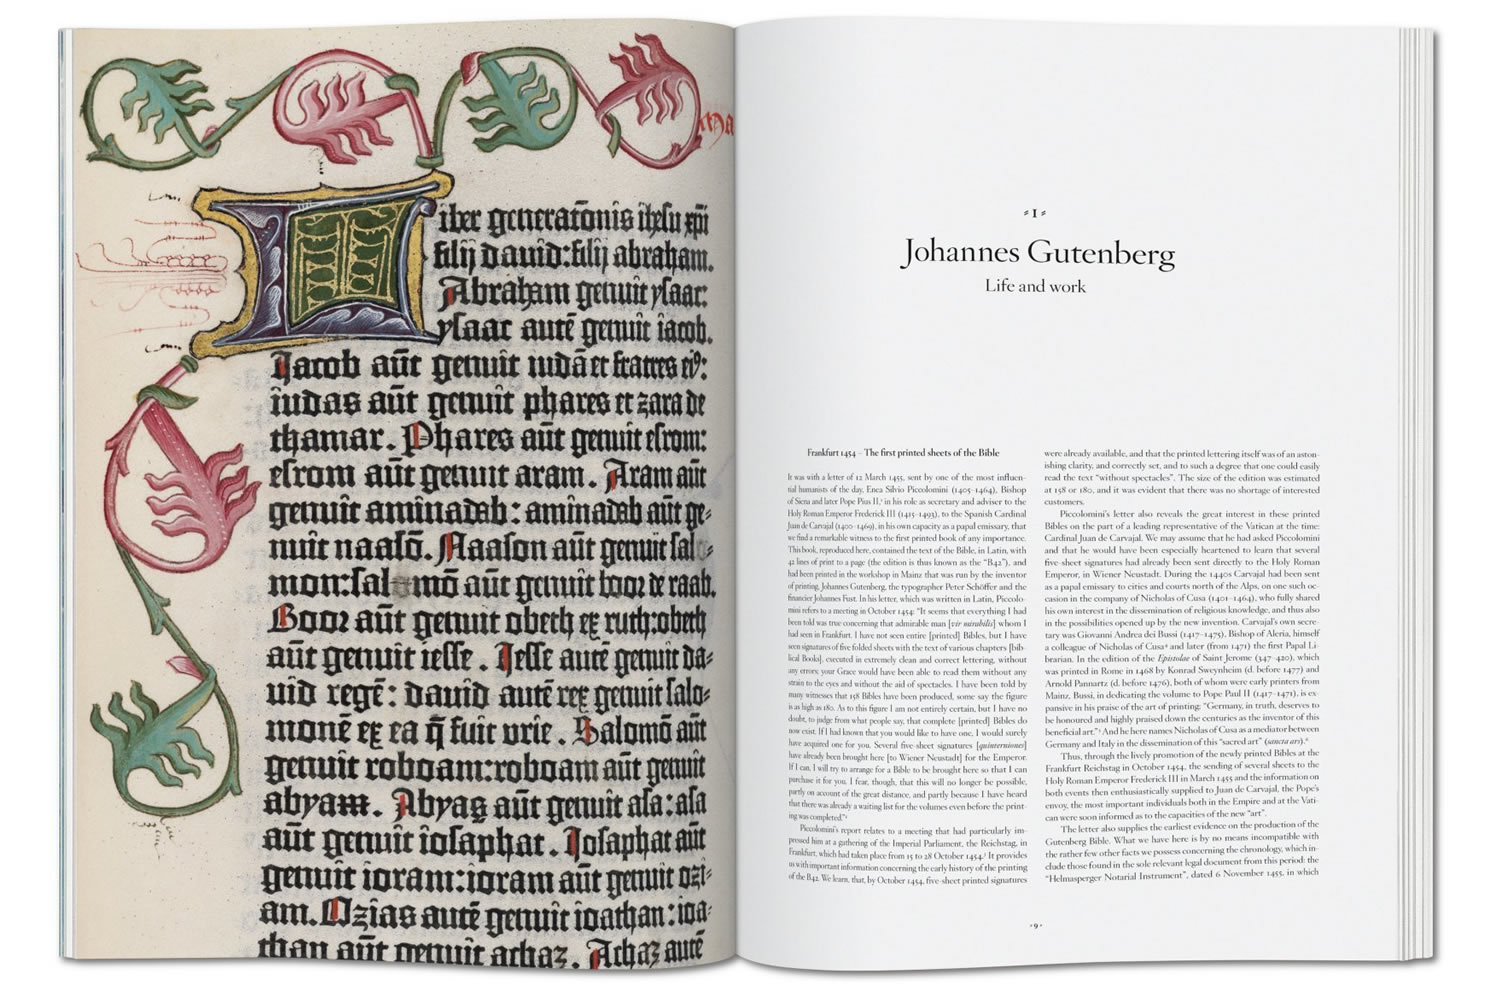 Liber generatõnis ihesu xp̃i
filij dauid: filij abraham.
Abraham genuit ysaac:
ysaac autẽ genuit iacob.
Iacob aũt genuit iudã et fratres eiꝰ:
iudas aũt genuit phares et zara de
thamar. Phares aũt genuit esrom:
esrom aũt genuit aram. Aram aũt
genuit aminadab: aminadab aũt ge⸗
nuit naasõ. Naason aũt genuit sal⸗
mon: salomõ aũt genuit booz de raab.
Booz aũt genuit obeth ex ruth: obeth
aũt genuit iesse. Iesse autẽ genuit da⸗
uid regẽ: dauid autẽ rex genuit salo⸗
monẽ ex ea q̃ fuit urie. Salomõ aũt
genuit roboam: roboam aũt genuit
abyam. Abyas aũt genuit asa: asa
aũt genuit iosaphat. Iosaphat aũt
genuit ioram: ioram aũt genuit ozi⸗
am. Ozias autẽ genuit ioathan: ioa⸗
than aũt genuit achaz. Achaz autẽ
I
Johannes Gutenberg
Life and work
Frankfurt 1454 – The first printed sheets of the Bible
It was with a letter of 12 March 1455, sent by one of the most influen-
tial humanists of the day, Enea Silvio Piccolomini (1405–1464), Bishop
of Siena and later Pope Pius II,¹ in his role as secretary and adviser to the
Holy Roman Emperor Frederick III (1415–1493), to the Spanish Cardinal
Juan de Carvajal (1400–1469), in his own capacity as a papal emissary, that
we find a remarkable witness to the first printed book of any importance.
This book, reproduced here, contained the text of the Bible, in Latin, with
42 lines of print to a page (the edition is thus known as the "B42"), and
had been printed in the workshop in Mainz that was run by the inventor
of printing, Johannes Gutenberg, the typographer Peter Schöffer and the
financier Johannes Fust. In his letter, which was written in Latin, Piccolo-
mini refers to a meeting in October 1454: "It seems that everything I had
been told was true concerning that admirable man [vir mirabilis] whom I
had seen in Frankfurt. I have not seen entire [printed] Bibles, but I have
seen signatures of five folded sheets with the text of various chapters [bib-
lical Books], executed in extremely clean and correct lettering, without
any errors; your Grace would have been able to read them without any
strain to the eyes and without the aid of spectacles. I have been told by
many witnesses that 158 Bibles have been produced, some say the figure
is as high as 180. As to this figure I am not entirely certain, but I have no
doubt, to judge from what people say, that complete [printed] Bibles do
now exist. If I had known that you would like to have one, I would surely
have acquired one for you. Several five-sheet signatures [quinterniones]
have already been brought here [to Wiener Neustadt] for the Emperor.
If I can, I will try to arrange for a Bible to be brought here so that I can
purchase it for you. I fear, though, that this will no longer be possible,
partly on account of the great distance, and partly because I have heard
that there was already a waiting list for the volumes even before the print-
ing was completed."²
Piccolomini's report relates to a meeting that had particularly im-
pressed him at a gathering of the Imperial Parliament, the Reichstag, in
Frankfurt, which had taken place from 15 to 28 October 1454.³ It provides
us with important information concerning the early history of the printing
of the B42. We learn, that, by October 1454, five-sheet printed signatures
were already available, and that the printed lettering itself was of an aston-
ishing clarity, and correctly set, and to such a degree that one could easily
read the text "without spectacles". The size of the edition was estimated
at 158 or 180, and it was evident that there was no shortage of interested
customers.
Piccolomini's letter also reveals the great interest in these printed
Bibles on the part of a leading representative of the Vatican at the time:
Cardinal Juan de Carvajal. We may assume that he had asked Piccolomini
and that he would have been especially heartened to learn that several
five-sheet signatures had already been sent directly to the Holy Roman
Emperor, in Wiener Neustadt. During the 1440s Carvajal had been sent
as a papal emissary to cities and courts north of the Alps, on one such oc-
casion in the company of Nicholas of Cusa (1401–1464), who fully shared
his own interest in the dissemination of religious knowledge, and thus also
in the possibilities opened up by the new invention. Carvajal's own secre-
tary was Giovanni Andrea dei Bussi (1417–1475), Bishop of Aleria, himself
a colleague of Nicholas of Cusa⁴ and later (from 1471) the first Papal Li-
brarian. In the edition of the Epistolae of Saint Jerome (347–420), which
was printed in Rome in 1468 by Konrad Sweynheim (d. before 1477) and
Arnold Pannartz (d. before 1476), both of whom were early printers from
Mainz, Bussi, in dedicating the volume to Pope Paul II (1417–1471), is ex-
pansive in his praise of the art of printing: "Germany, in truth, deserves to
be honoured and highly praised down the centuries as the inventor of this
beneficial art."⁵ And he here names Nicholas of Cusa as a mediator between
Germany and Italy in the dissemination of this "sacred art" (sancta ars).⁶
Thus, through the lively promotion of the newly printed Bibles at the
Frankfurt Reichstag in October 1454, the sending of several sheets to the
Holy Roman Emperor Frederick III in March 1455 and the information on
both events then enthusiastically supplied to Juan de Carvajal, the Pope's
envoy, the most important individuals both in the Empire and at the Vati-
can were soon informed as to the capacities of the new "art".
The letter also supplies the earliest evidence on the production of the
Gutenberg Bible. What we have here is by no means incompatible with
the rather few other facts we possess concerning the chronology, which in-
clude those found in the sole relevant legal document from this period: the
"Helmasperger Notarial Instrument", dated 6 November 1455, in which
9